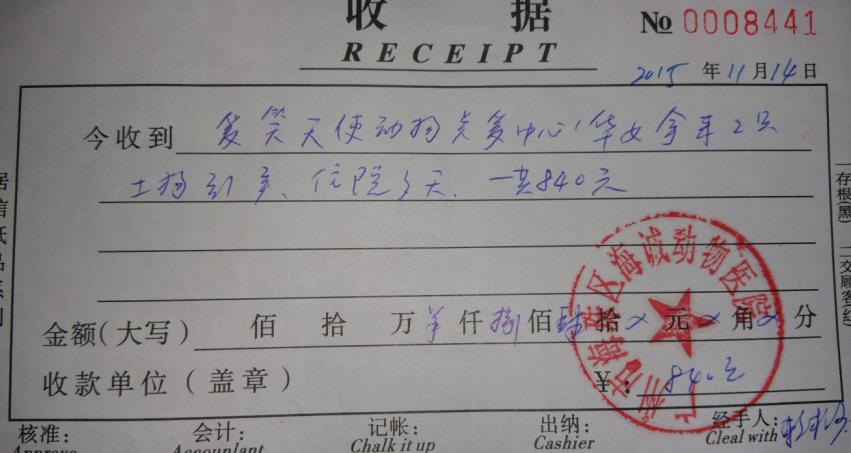 收 据
RECEIPT
№ 0008441
2015 年 11 月 14 日
今收到 爱笑天使动物 中心 华女拿来2只
土狗 、住院 天. 一共840元
金额(大写) 佰 拾 万 仟 捌 佰 肆 拾 元 角 分
收款单位(盖章) ¥: 840元
广州市海珠区海诚动物医院
核准: 会计: 记帐: 出纳: 经手人:
Approve Accountant Chalk it up Cashier Cleal with
一存根(黑) 二交顾客(红)